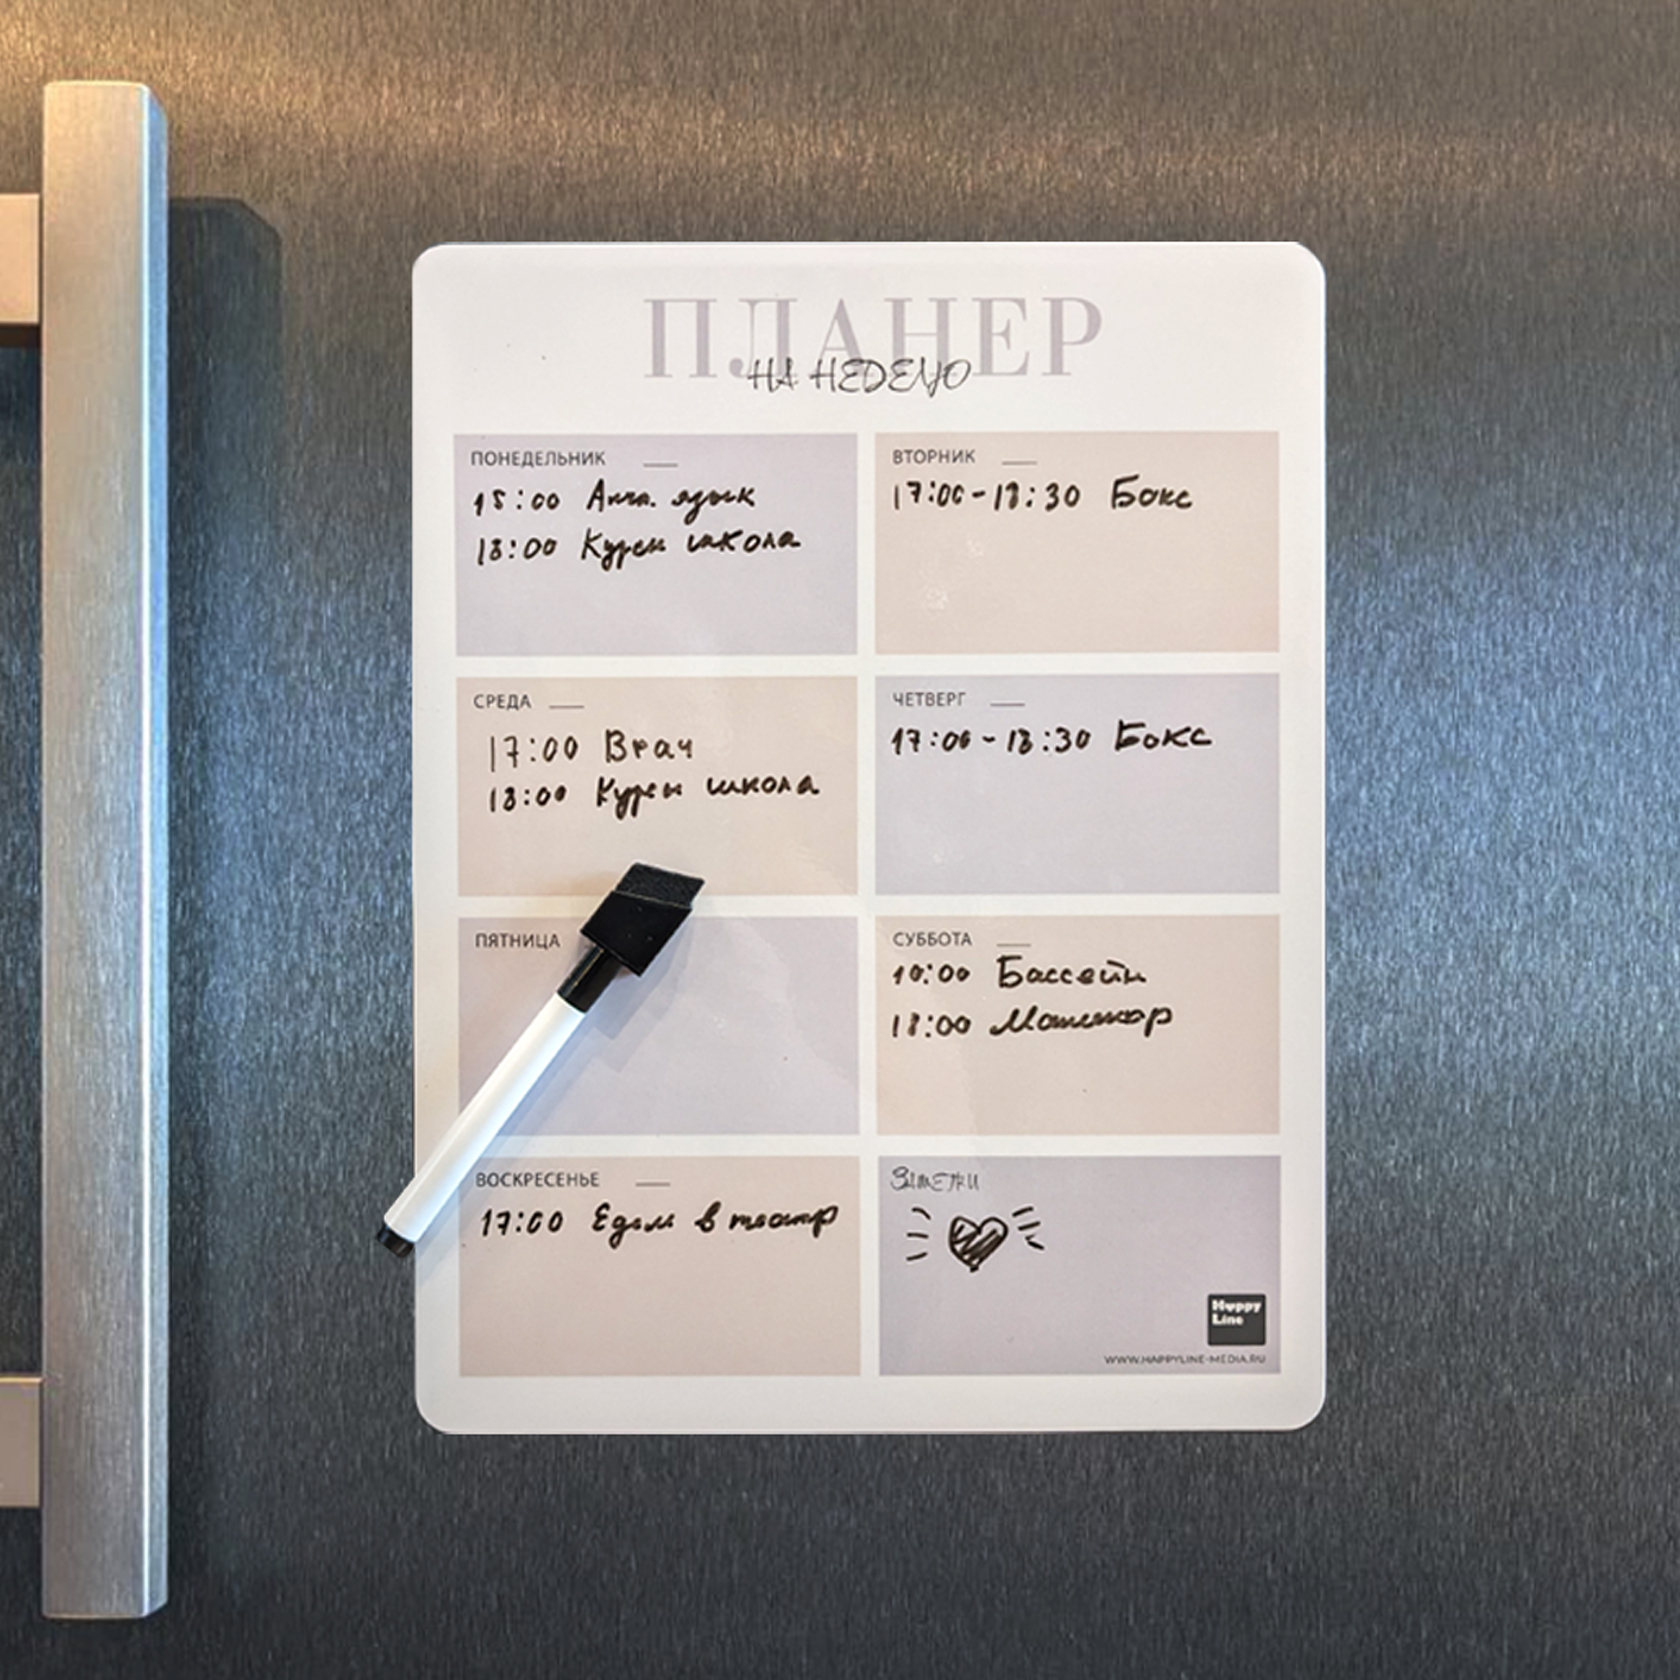 ПЛАНЕР
НА НЕДЕЛЮ
ПОНЕДЕЛЬНИК
15:00 Англ. язык
18:00 Курсы школа
ВТОРНИК
17:00-18:30 Бокс
СРЕДА
17:00 Врач
18:00 Курсы школа
ЧЕТВЕРГ
17:00-18:30 Бокс
ПЯТНИЦА
СУББОТА
10:00 Бассейн
18:00 Маникюр
ВОСКРЕСЕНЬЕ
17:00 Едем в театр
Заметки
Happy
Line
WWW.HAPPYLINE-MEDIA.RU